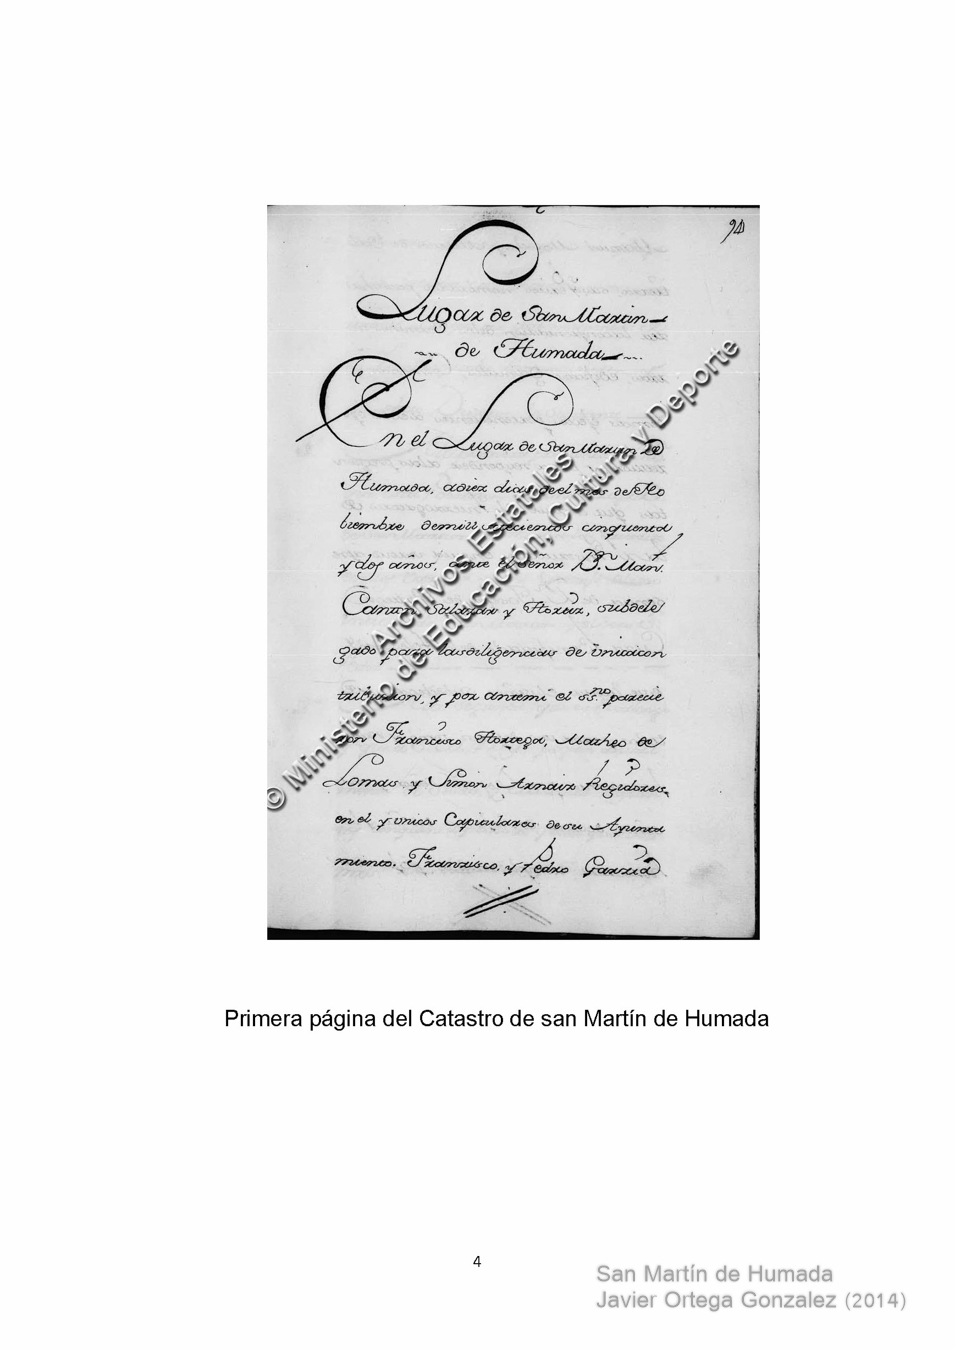 94
Lugar de San Martin
de Humada
En el Lugar de San Martin de
Humada, adiez dias de el mes de No
biembre demill setecientos cinquenta
y dos años, ante el Señor Dn. Man.
Canton Salazar y , subdele
gado para las diligencias de Unicacon
tribucion, y por antemi el ssno parecie
ron Francisco Hortega, Matheo de
Lomas y Simon Arnaiz Regidores,
en el y unicos Capitulares de su Ayunta
miento. Franzisco, y Pedro Garzia
© Ministerio de Educación, Cultura y Deporte
Archivos Estatales
Primera página del Catastro de san Martín de Humada
4
San Martín de Humada
Javier Ortega Gonzalez (2014)